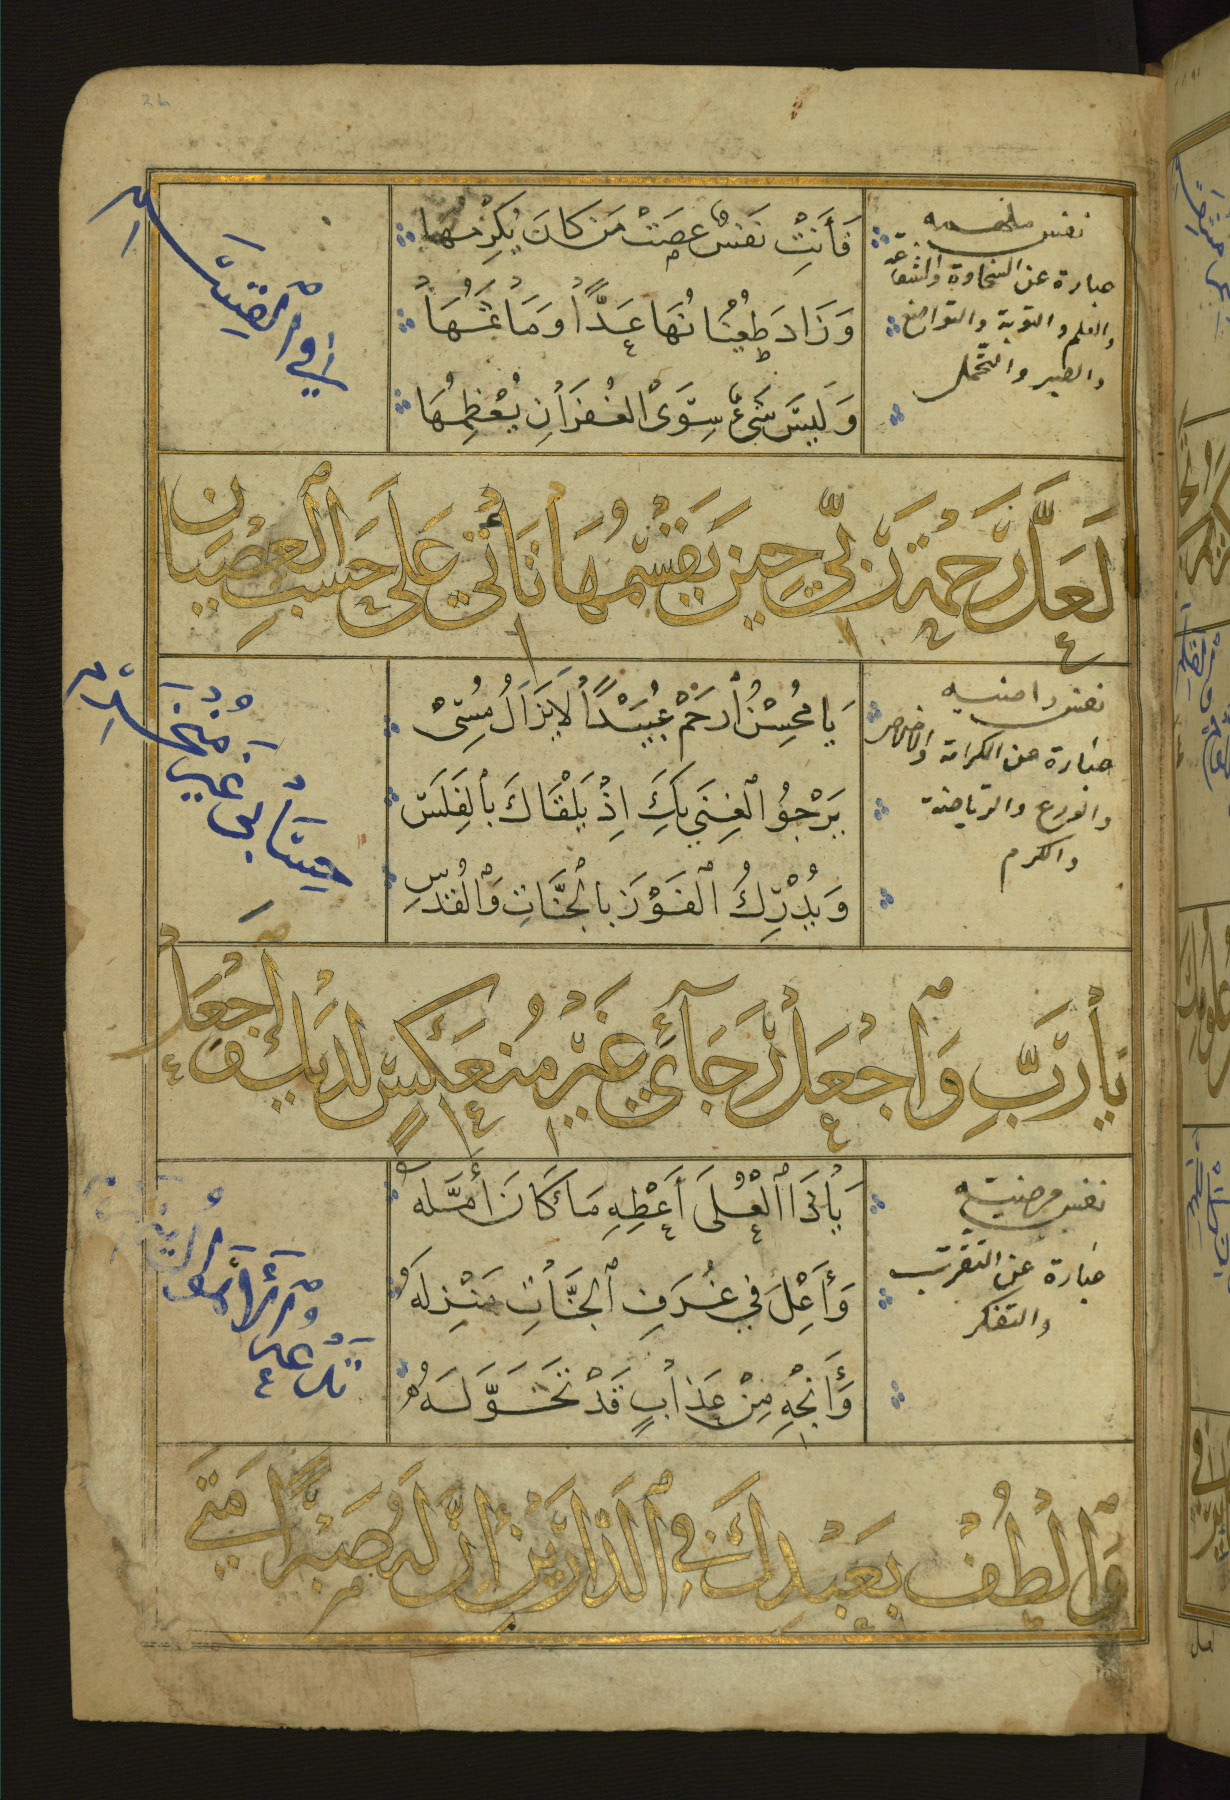 نفس ملهمه
عبارة عن السخاوة والقناعة
والعلم والتوبة والتواضع
والصبر والتحمل
فَأَنْتِ نَفْسٌ عَصَتْ مَن كَانَ يُكْرِمُهَا
وَزَادَ طُغْيَانُهَا عَدًّا وَمَاثَمُهَا
وَلَيْسَ شَيْءٌ سِوَى الْغُفْرَانِ يُعْظِمُهَا
لَعَلَّ رَحْمَةَ رَبِّي حِينَ يَقْسِمُهَا تَأْتِي عَلَى حَسَبِ الْعِصْيَانِ
فِي الْقِسَمِ
نفس راضيه
عبارة عن الكرامة والاخلاص
والورع والرياضة
والكرم
يَا مُحْسِنُ ارْحَمْ عُبَيْدًا لَا يَزَالُ مُسِىْ
يَرْجُو الْغِنَى بِكَ اِذْ يَلْقَاكَ بِالْفَلَسِ
وَيُدْرِكُ الْفَوْزَ بِالْجَنَّاتِ وَالْقُدْسِ
يَا رَبِّ وَاجْعَلْ رَجَائِي غَيْرَ مُنْعَكِسٍ لَدَيْكَ وَاجْعَلْ
حِسَابِي غَيْرَ مُنْخَرِمِ
نفس مرضيه
عبارة عن التقرب
والتفكر
يَا ذَا الْعُلَى أَعْطِهِ مَا كَانَ أَمَّلَهُ
وَأَعْلِ فِي غُرَفِ الْجَنَّاتِ مَنْزِلَهُ
وَأَنْجِهِ مِنْ عَذَابٍ قَدْ تَخَوَّلَهُ
وَالْطُفْ بِعَبْدِكَ فِي الدَّارَيْنِ إِنَّ لَهُ صَبْرًا مَتَى
تَدْعُهُ الْأَهْوَالُ